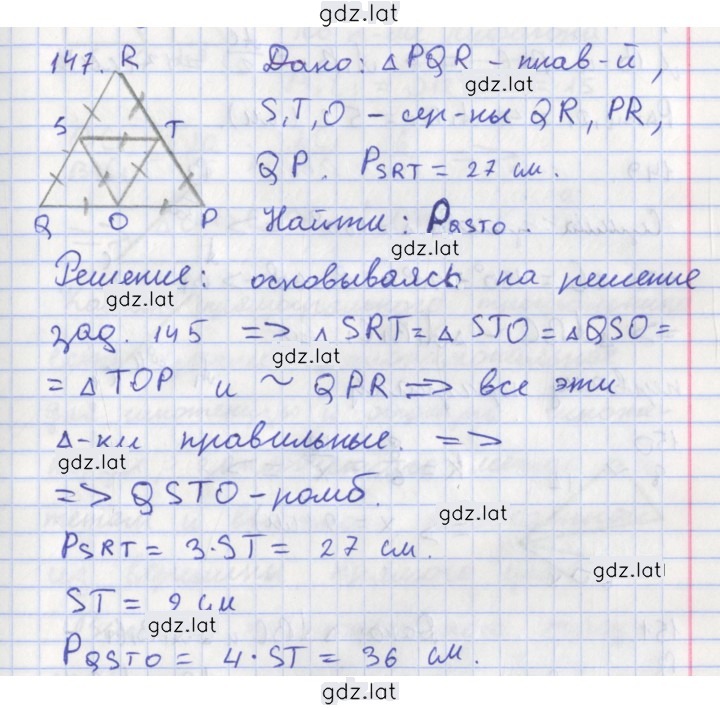 gdz.lat
147. R Дано: △ PQR – прав-й,
gdz.lat
S T S,T,O – сер-ны QR, PR,
QP. P SRT = 27 см.
Q O P Найти: P QSTO.
gdz.lat
Решение: основываясь на решение
gdz.lat
зад. 145 => △ SRT = △ STO = △ QSO =
gdz.lat
= △ TOP и ~ QPR => все эти
△-ки правильные. =>
gdz.lat
=> QSTO – ромб.
gdz.lat
P SRT = 3·ST = 27 см.
gdz.lat
ST = 9 см
gdz.lat
P QSTO = 4·ST = 36 см.
gdz.lat